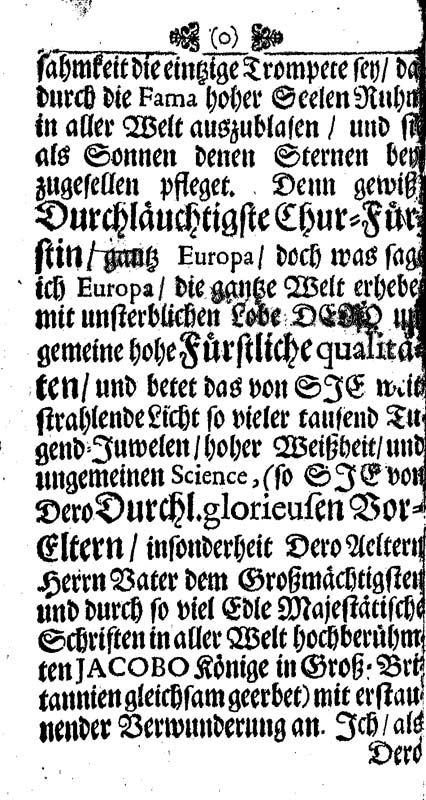 (o)
sahmkeit die eintzige Trompete sey/ da
durch die Fama hoher Seelen Ruhm
in aller Welt auszublasen / und si
als Sonnen denen Sternen bey
zugesellen pfleget. Denn gewiß
Durchläuchtigste Chur-Für-
stin/ gantz Europa/ doch was sage
ich Europa/ die gantze Welt erhebet
mit unsterblichen Lobe DERO un
gemeine hohe Fürstliche qualitä-
ten/ und betet das von SIE weit
strahlende Licht so vieler tausend Tu
gend-Juwelen/ hoher Weißheit/ und
ungemeinen Science, (so SIE von
Dero Durchl. glorieusen Vor-
Eltern/ insonderheit Dero Aeltern
Herrn Vater dem Großmächtigsten
und durch so viel Edle Majestätische
Schriften in aller Welt hochberühm
ten JACOBO Könige in Groß-Bri
tannien gleichsam geerbet) mit erstau
nender Verwunderung an. Ich/ als
Dero